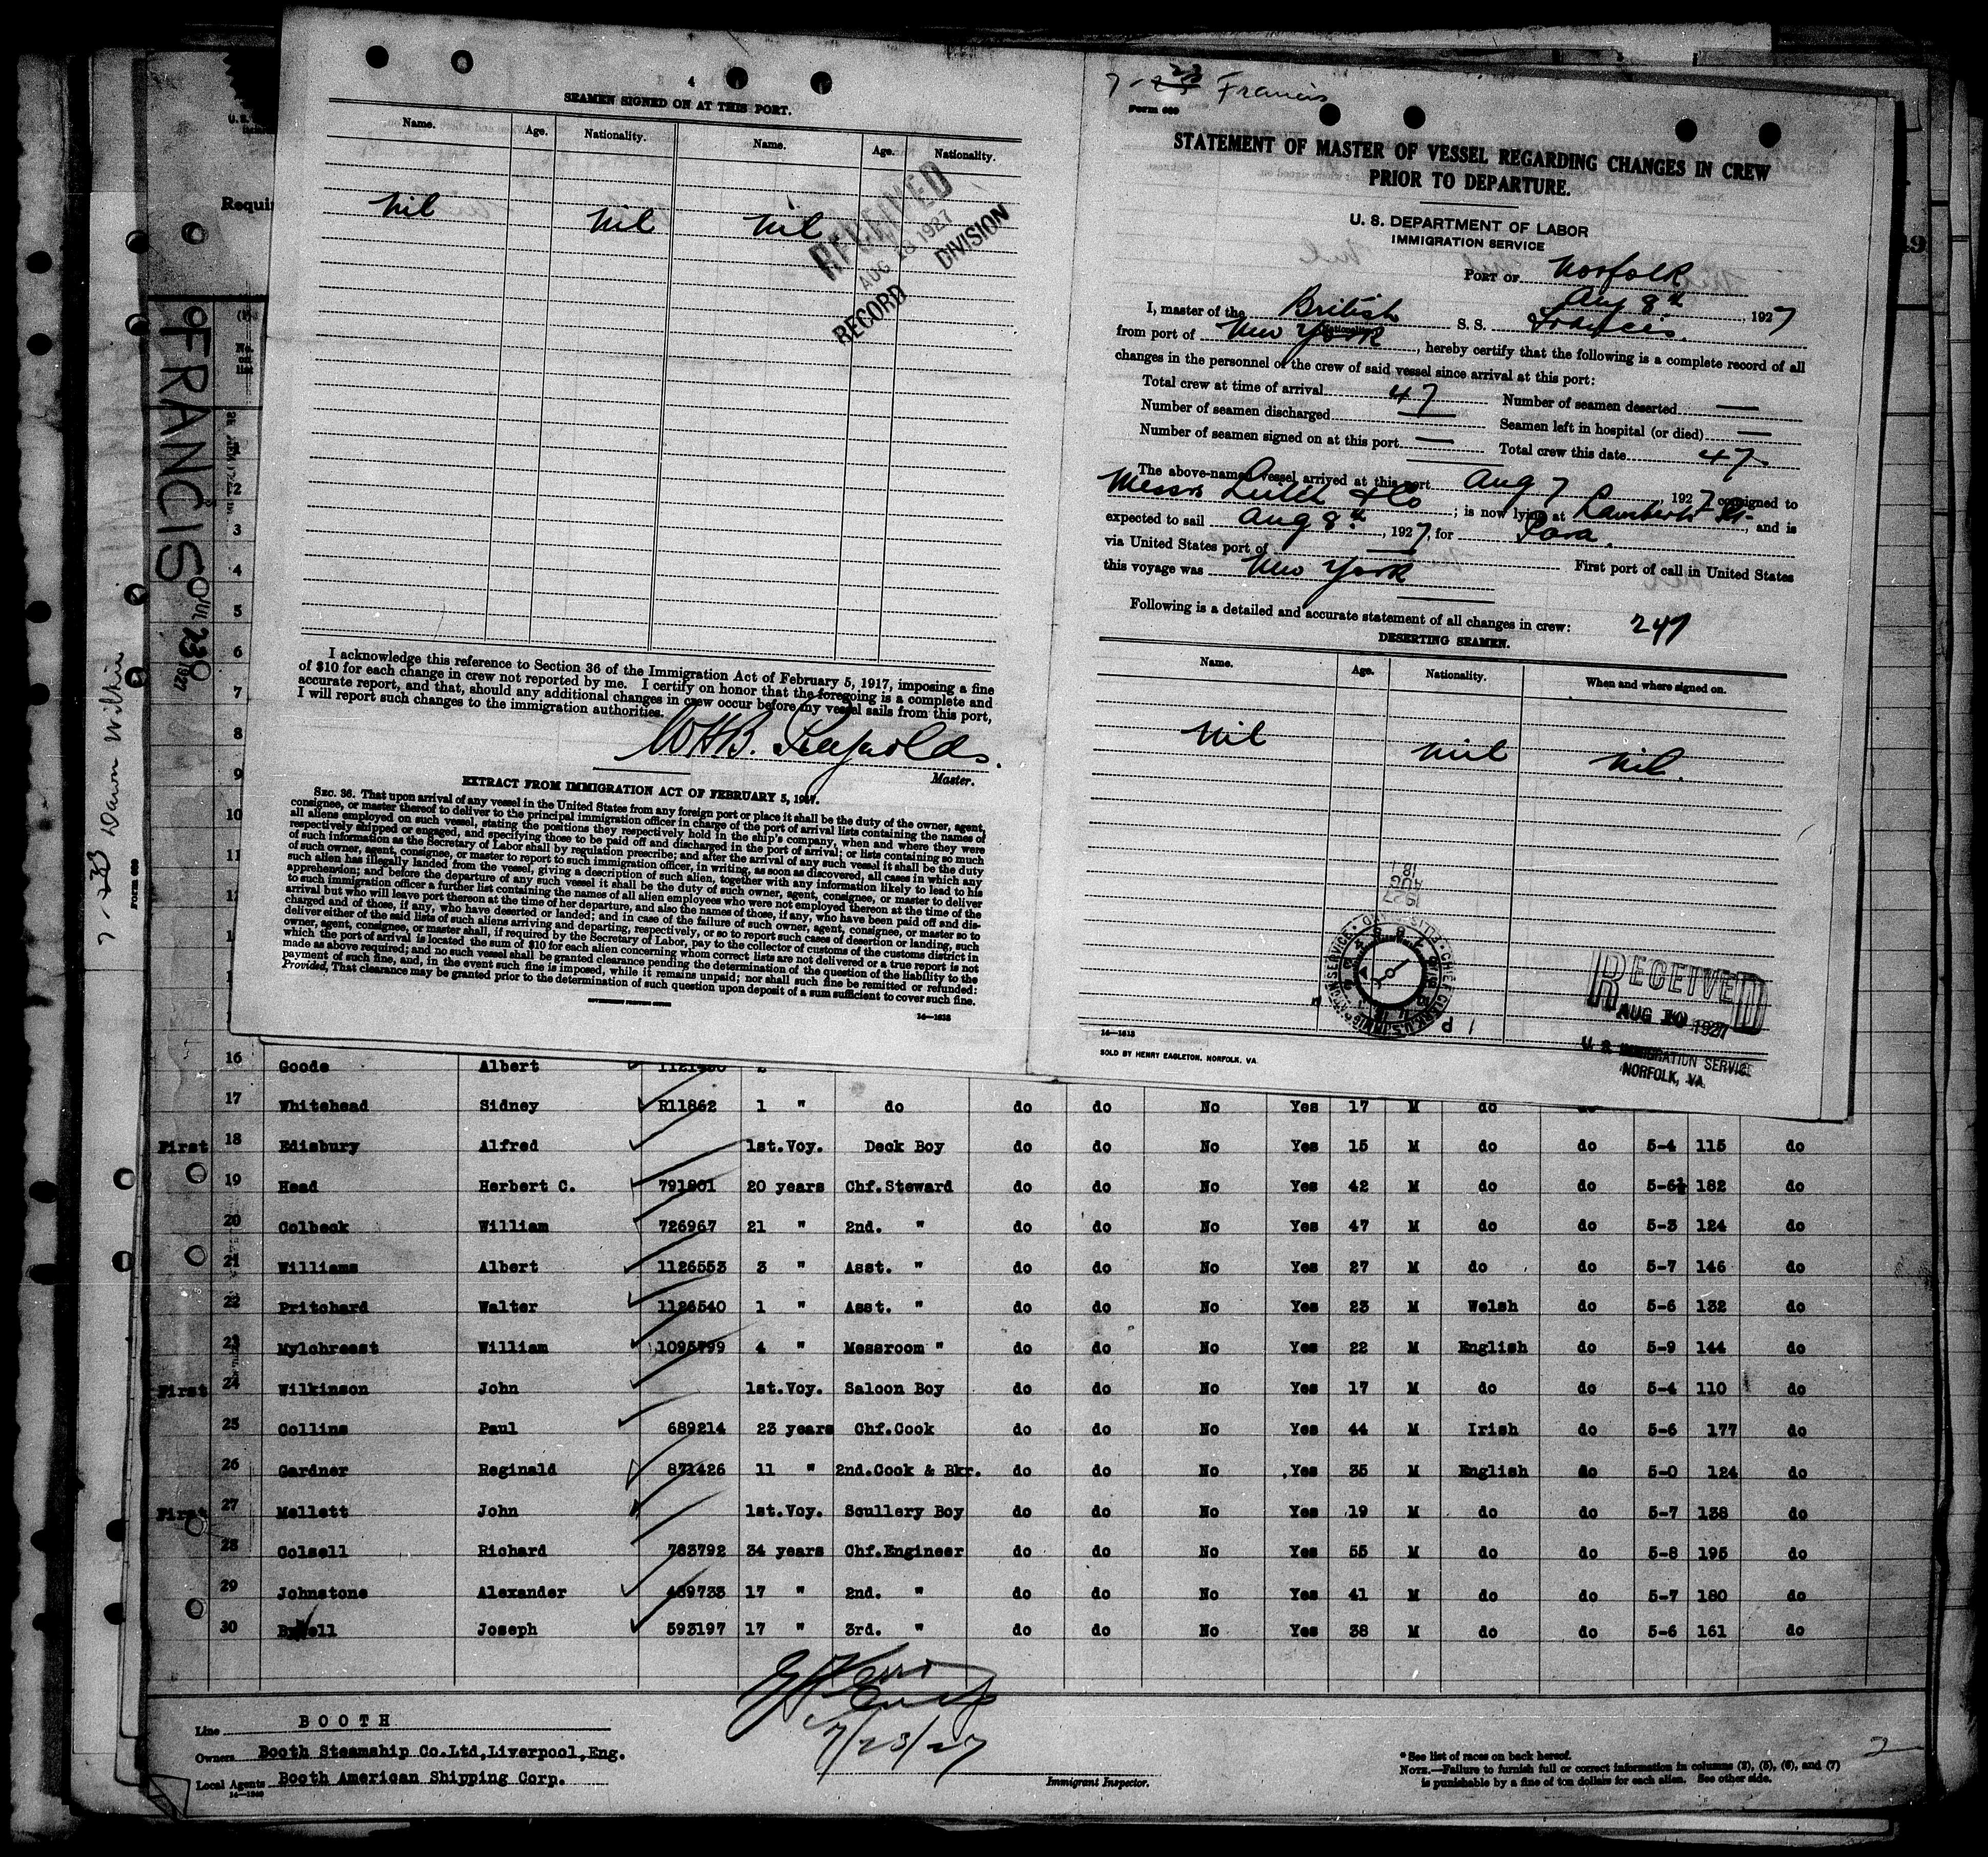 4
SEAMEN SIGNED ON AT THIS PORT.
Name. Age. Nationality. Name. Age. Nationality.
Nil Nil Nil
RECEIVED
AUG 1927
RECORD DIVISION
I acknowledge this reference to Section 36 of the Immigration Act of February 5, 1917, imposing a fine
of $10 for each change in crew not reported by me. I certify on honor that the foregoing is a complete and
accurate report, and that, should any additional changes in crew occur before my vessel sails from this port,
I will report such changes to the immigration authorities.
WHB. Reynolds.
Master.
EXTRACT FROM IMMIGRATION ACT OF FEBRUARY 5, 1917.
SEC. 36. That upon arrival of any vessel in the United States from any foreign port or place it shall be the duty of the owner, agent,
consignee, or master thereof to deliver to the principal immigration officer in charge of the port of arrival lists containing the names of
all aliens employed on such vessel, stating the positions they respectively hold in the ship's company, when and where they were
respectively shipped or engaged, and specifying those to be paid off and discharged in the port of arrival; or lists containing so much
of such information as the Secretary of Labor shall by regulation prescribe; and after the arrival of any such vessel it shall be the duty
of such owner, agent, consignee, or master to report to such immigration officer, in writing, as soon as discovered, all cases in which any
such alien has illegally landed from the vessel, giving a description of such alien, together with any information likely to lead to his
apprehension; and before the departure of any such vessel it shall be the duty of such owner, agent, consignee, or master to deliver
to such immigration officer a further list containing the names of all alien employees who were not employed thereon at the time of the
arrival but who will leave port thereon at the time of her departure, and also the names of those, if any, who have been paid off and dis-
charged and of those, if any, who have deserted or landed; and in case of the failure of such owner, agent, consignee, or master so to
deliver either of the said lists of such aliens arriving and departing, respectively, or so to report such cases of desertion or landing, such
owner, agent, consignee, or master shall, if required by the Secretary of Labor, pay to the collector of customs of the customs district in
which the port of arrival is located the sum of $10 for each alien concerning whom correct lists are not delivered or a true report is not
made as above required; and no such vessel shall be granted clearance pending the determination of the question of the liability to the
payment of such fine, and, in the event such fine is imposed, while it remains unpaid; nor shall such fine be remitted or refunded:
Provided, That clearance may be granted prior to the determination of such question upon deposit of a sum sufficient to cover such fine.
GOVERNMENT PRINTING OFFICE
14—1618
7-23 Francis
Form 689
STATEMENT OF MASTER OF VESSEL REGARDING CHANGES IN CREW
PRIOR TO DEPARTURE.
U. S. DEPARTMENT OF LABOR
IMMIGRATION SERVICE
PORT OF Norfolk
Aug 8th, 1927
I, master of the British S. S. Francis.
from port of New York, hereby certify that the following is a complete record of all
changes in the personnel of the crew of said vessel since arrival at this port:
Total crew at time of arrival 47 Number of seamen deserted —
Number of seamen discharged — Seamen left in hospital (or died) —
Number of seamen signed on at this port — Total crew this date 47
The above-named vessel arrived at this port Aug 7, 1927 consigned to
Messrs & Co; is now lying at Pt., and is
expected to sail Aug 8th, 1927, for Para.
via United States port of — First port of call in United States
this voyage was New York
Following is a detailed and accurate statement of all changes in crew: 247
DESERTING SEAMEN.
Name. Age. Nationality. When and where signed on.
Nil Nil Nil.
1927
AUG
18
CHIEF CLERK, U.S. IMMIGRATION SERVICE
RECEIVED
AUG 10 1927
U. S. IMMIGRATION SERVICE
NORFOLK, VA.
14—1618
SOLD BY HENRY EAGLETON, NORFOLK, VA.
FRANCIS
JUL 23 1927
7-23 Dawn Wilkin
Form 689
Requi
No. on list
1
2
3
4
5
6
7
8
9
10
11
16 Goode Albert
17 Whitehead Sidney R11862 1 " do do do No Yes 17 M do do
First 18 Edisbury Alfred 1st.Voy. Deck Boy do do No Yes 15 M do do 5-4 115 do
19 Head Herbert C. 791801 20 years Chf.Steward do do No Yes 42 M do do 5-6½ 182 do
20 Colbeck William 726967 21 " 2nd. " do do No Yes 47 M do do 5-3 124 do
21 Williams Albert 1126553 3 " Asst. " do do No Yes 27 M do do 5-7 146 do
22 Pritchard Walter 1126540 1 " Asst. " do do No Yes 23 M Welsh do 5-6 132 do
23 Mylchreest William 1095799 4 " Messroom " do do No Yes 22 M English do 5-9 144 do
First 24 Wilkinson John 1st.Voy. Saloon Boy do do No Yes 17 M do do 5-4 110 do
25 Collins Paul 689214 23 years Chf.Cook do do No Yes 44 M Irish do 5-6 177 do
26 Gardner Reginald 871426 11 " 2nd.Cook & Bkr. do do No Yes 35 M English do 5-0 124 do
First 27 Mellett John 1st.Voy. Scullery Boy do do No Yes 19 M do do 5-7 138 do
28 Colsell Richard 783792 34 years Chf.Engineer do do No Yes 55 M do do 5-8 195 do
29 Johnstone Alexander 489733 17 " 2nd. " do do No Yes 41 M do do 5-7 180 do
30 Joseph 593197 17 " 3rd. " do do No Yes 38 M do do 5-6 161 do
7/23/27
Line BOOTH
Owners Booth Steamship Co.Ltd,Liverpool,Eng.
Local Agents Booth American Shipping Corp.
14—1240
Immigrant Inspector.
* See list of races on back hereof.
NOTE.—Failure to furnish full or correct information in columns (2), (5), (6), and (7)
is punishable by a fine of ten dollars for each alien. See other side.
2